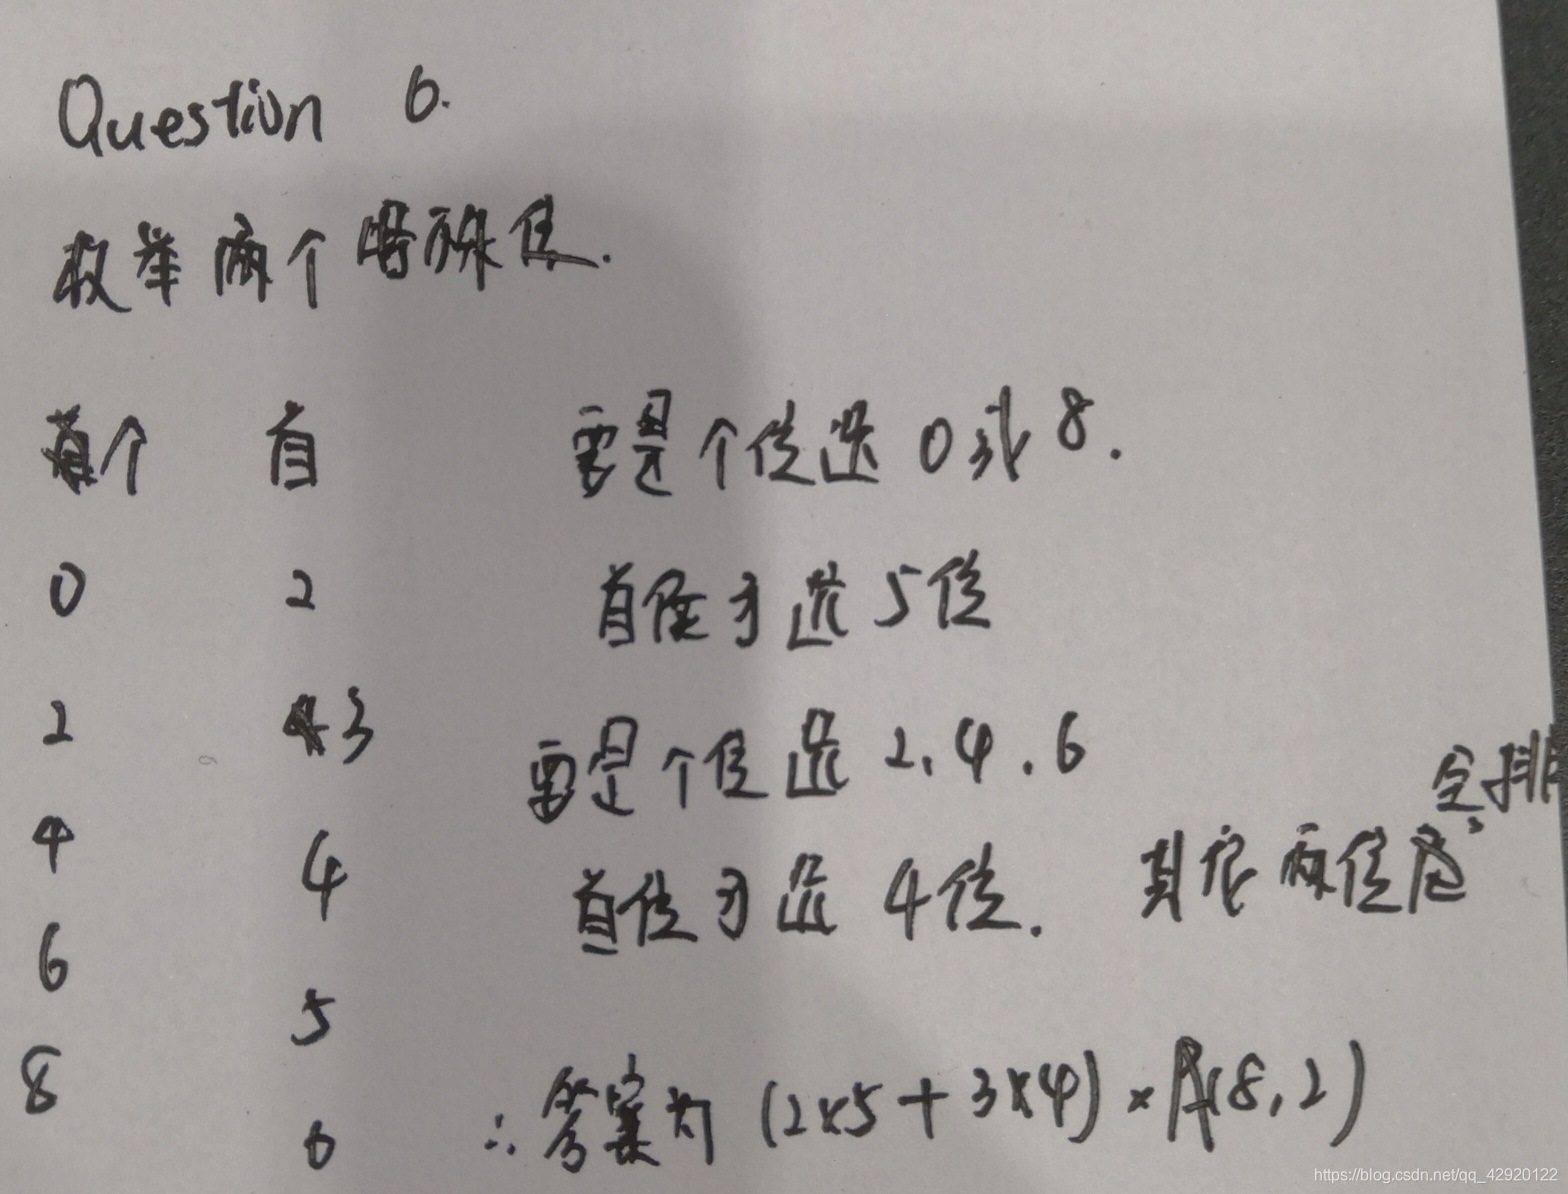 Question 6.
枚举两个特殊位.
个 首 要是个位选 0 或 8.
0 2 首位可选 5 位
2 3 要是个位选 2、4、6
全排
4 4 首位可选 4 位. 其他两位随意
6
5
8 ∴答案为 (2x5+3x4) x A(8,2)
6
https://blog.csdn.net/qq_42920122